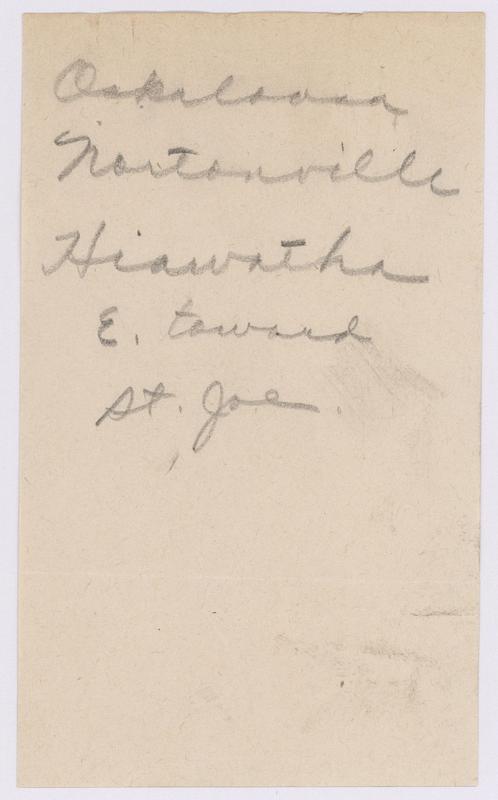 Oskaloosa
Nortonville
Hiawatha
E. toward
St. Joe.